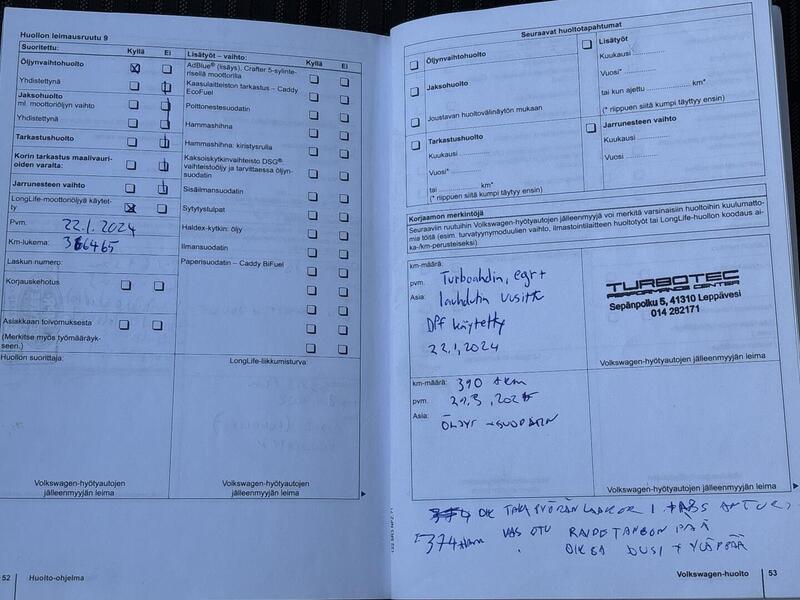 Huollon leimausruutu 9
Suoritettu: Kyllä Ei
Öljynvaihtohuolto
Yhdistettynä
Jaksohuolto
ml. moottoriöljyn vaihto
Yhdistettynä
Tarkastushuolto
Korin tarkastus maalivauri-
oiden varalta:
Jarrunesteen vaihto
LongLife-moottoriöljyä käytet-
ty
Pvm. 22.1.2024
Km-lukema: 366465
Laskun numero:
Korjauskehotus
Asiakkaan toivomuksesta
(Merkitse myös työmääräyk-
seen.)
Huollon suorittaja:
Volkswagen-hyötyautojen
jälleenmyyjän leima
Lisätyöt – vaihto: Kyllä Ei
AdBlue® (lisäys), Crafter 5-sylinte-
risellä moottorilla
Kaasulaitteiston tarkastus – Caddy
EcoFuel
Polttonestesuodatin
Hammashihna
Hammashihna: kiristysrulla
Kaksoiskytkinvaihteisto DSG®:
vaihteistoöljy ja tarvittaessa öljyn-
suodatin
Sisäilmansuodatin
Sytytystulpat
Haldex-kytkin: öljy
Ilmansuodatin
Paperisuodatin – Caddy BiFuel
LongLife-liikkumisturva:
Volkswagen-hyötyautojen
jälleenmyyjän leima
52 Huolto-ohjelma
Seuraavat huoltotapahtumat
Öljynvaihtohuolto
Jaksohuolto
Joustavan huoltovälinäytön mukaan
Tarkastushuolto
Kuukausi
Vuosi*
tai km*
(* riippuen siitä kumpi täyttyy ensin)
Lisätyöt
Kuukausi
Vuosi*
tai kun ajettu km*
(* riippuen siitä kumpi täyttyy ensin)
Jarrunesteen vaihto
Kuukausi
Vuosi
Korjaamon merkintöjä
Seuraaviin ruutuihin Volkswagen-hyötyautojen jälleenmyyjä voi merkitä varsinaisiin huoltoihin kuulumatto-
mia töitä (esim. turvatyynymoduulien vaihto, ilmastointilaitteen huoltotyöt tai LongLife-huollon koodaus ai-
ka-/km-perusteiseksi)
km-määrä:
pvm. Turboahdin, egr+
Asia: lauhdutin uusittu
DPF käytetty
22.1.2024
TURBOTEC
PERFORMANCE CENTER
Sepänpolku 5, 41310 Leppävesi
014 282171
Volkswagen-hyötyautojen jälleenmyyjän leima
km-määrä: 390 tkm
pvm.
Asia: ÖLJYT + SUODATIN
Volkswagen-hyötyautojen
jälleenmyyjän leima
OIK TAKAPYÖRÄN LAAKERI + ABS ANTURI,
374tkm VAS ETU RAIDETANGON PÄÄ
OIKEA
Volkswagen-huolto 53